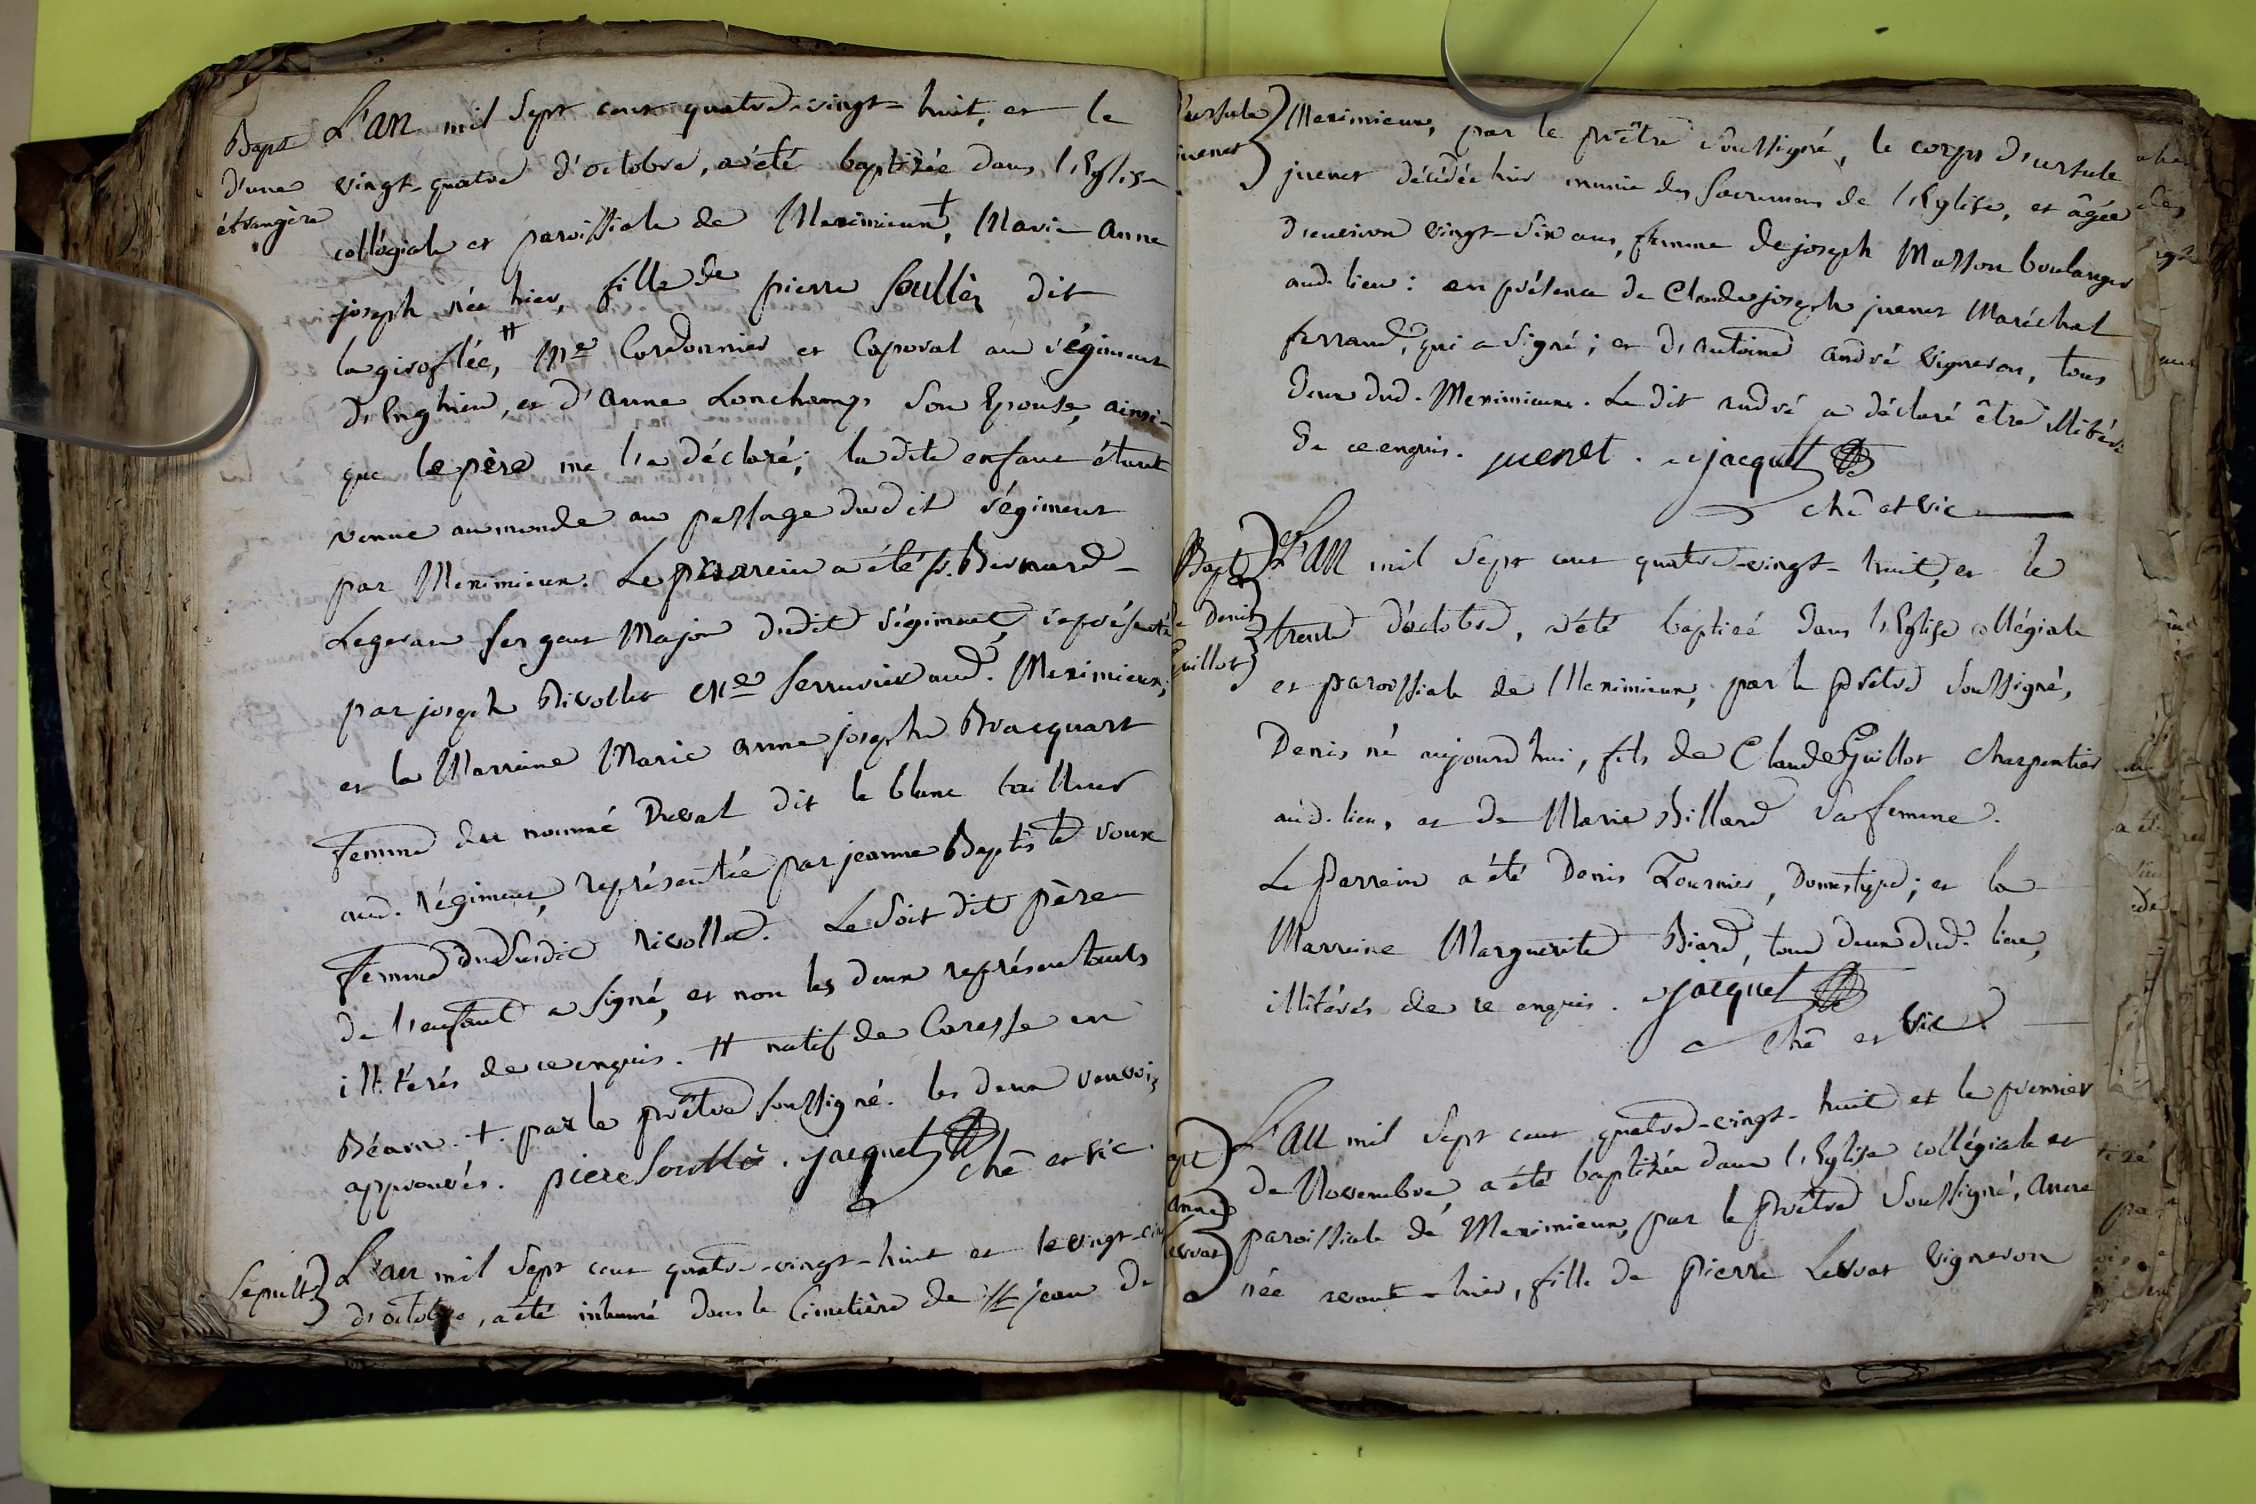 Bapt
d'une
étrangère
L'an mil sept cent quatre-vingt-huit, et le
vingt-quatre d'octobre, a été baptisée dans l'Eglise
collégiale et paroissiale de Meximieux +, Marie anne
joseph née hier, fille de pierre Soullèz dit
la giroflée, # Me Cordonnier et Caporal au régiment
d'Enghien, et d'anne Lonchamp son Epouse, ainsi-
que le père me l'a déclaré; la dite enfant étant
venue au monde au passage dudit régiment
par Meximieux. Le parrein a été sr. Bernard-
Legerau sergent Major dudit régiment, représenté
par joseph Rivollet Me serrurier aud. Meximieux;
et la Marraine Marie anne joseph Bracquart
femme du nommé Duval dit le blanc tailleur
aud. régiment, représentée par jeanne Baptiste voux
femme dudsusdit rivollet. Le soit dit père
de l'enfant a signé, et non les deux représentants
illitérés de ce enquis. # natif de Caresse en
Béarn. + par le prêtre soussigné. les deux renvois
approuvés. piere Soullè . jacquet
chê et vic.
Sepult.
L'an mil sept cent quatre-vingt-huit et le vingt-cin
d'octobre, a été inhumé dans le Cimetière de St jean de
d'ursule
juenet
Meximieux, par le prêtre soussigné, le corps d'ursule
juenet décédée hier munie des sacremens de l'Eglise, et âgée
d'environ vingt-six ans, femme de joseph Masson boulanger
aud. lieu: en présence de Claude joseph juenet Maréchal
ferrand, qui a signé; et d'antoine andré vigneron, tous
deux dud. Meximieux. Le dit andré a déclaré être illitéré
de ce enquis. juenet . jacquet
chê et vic
Bapt
de Denis
Guillot
L'an mil sept cent quatre-vingt-huit, et le
trente d'octobre, a été baptisé dans l'Eglise collégiale
et paroissiale de Meximieux, par le prêtre soussigné,
Denis né aujourd'hui, fils de Claude Guillot Charpentier
aud. lieu, et de Marie Billard sa femme.
Le Parrein a été Denis Fournier, Domestique; et la
Marraine Marguerite Biard, tous deux dud. lieu,
illitérés de ce enquis. jacquet
chê et vic.
Bapt
anne
Levrat
L'an mil sept cent quatre-vingt-huit et le premier
de Novembre a été baptisée dans l'Eglise collégiale et
paroissiale de Meximieux, par le prêtre soussigné, anne
née avant-hier, fille de Pierre Levrat vigneron